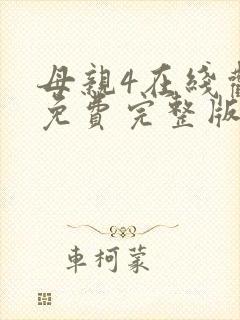 母親4在綫
免費完整版
車柯蒙